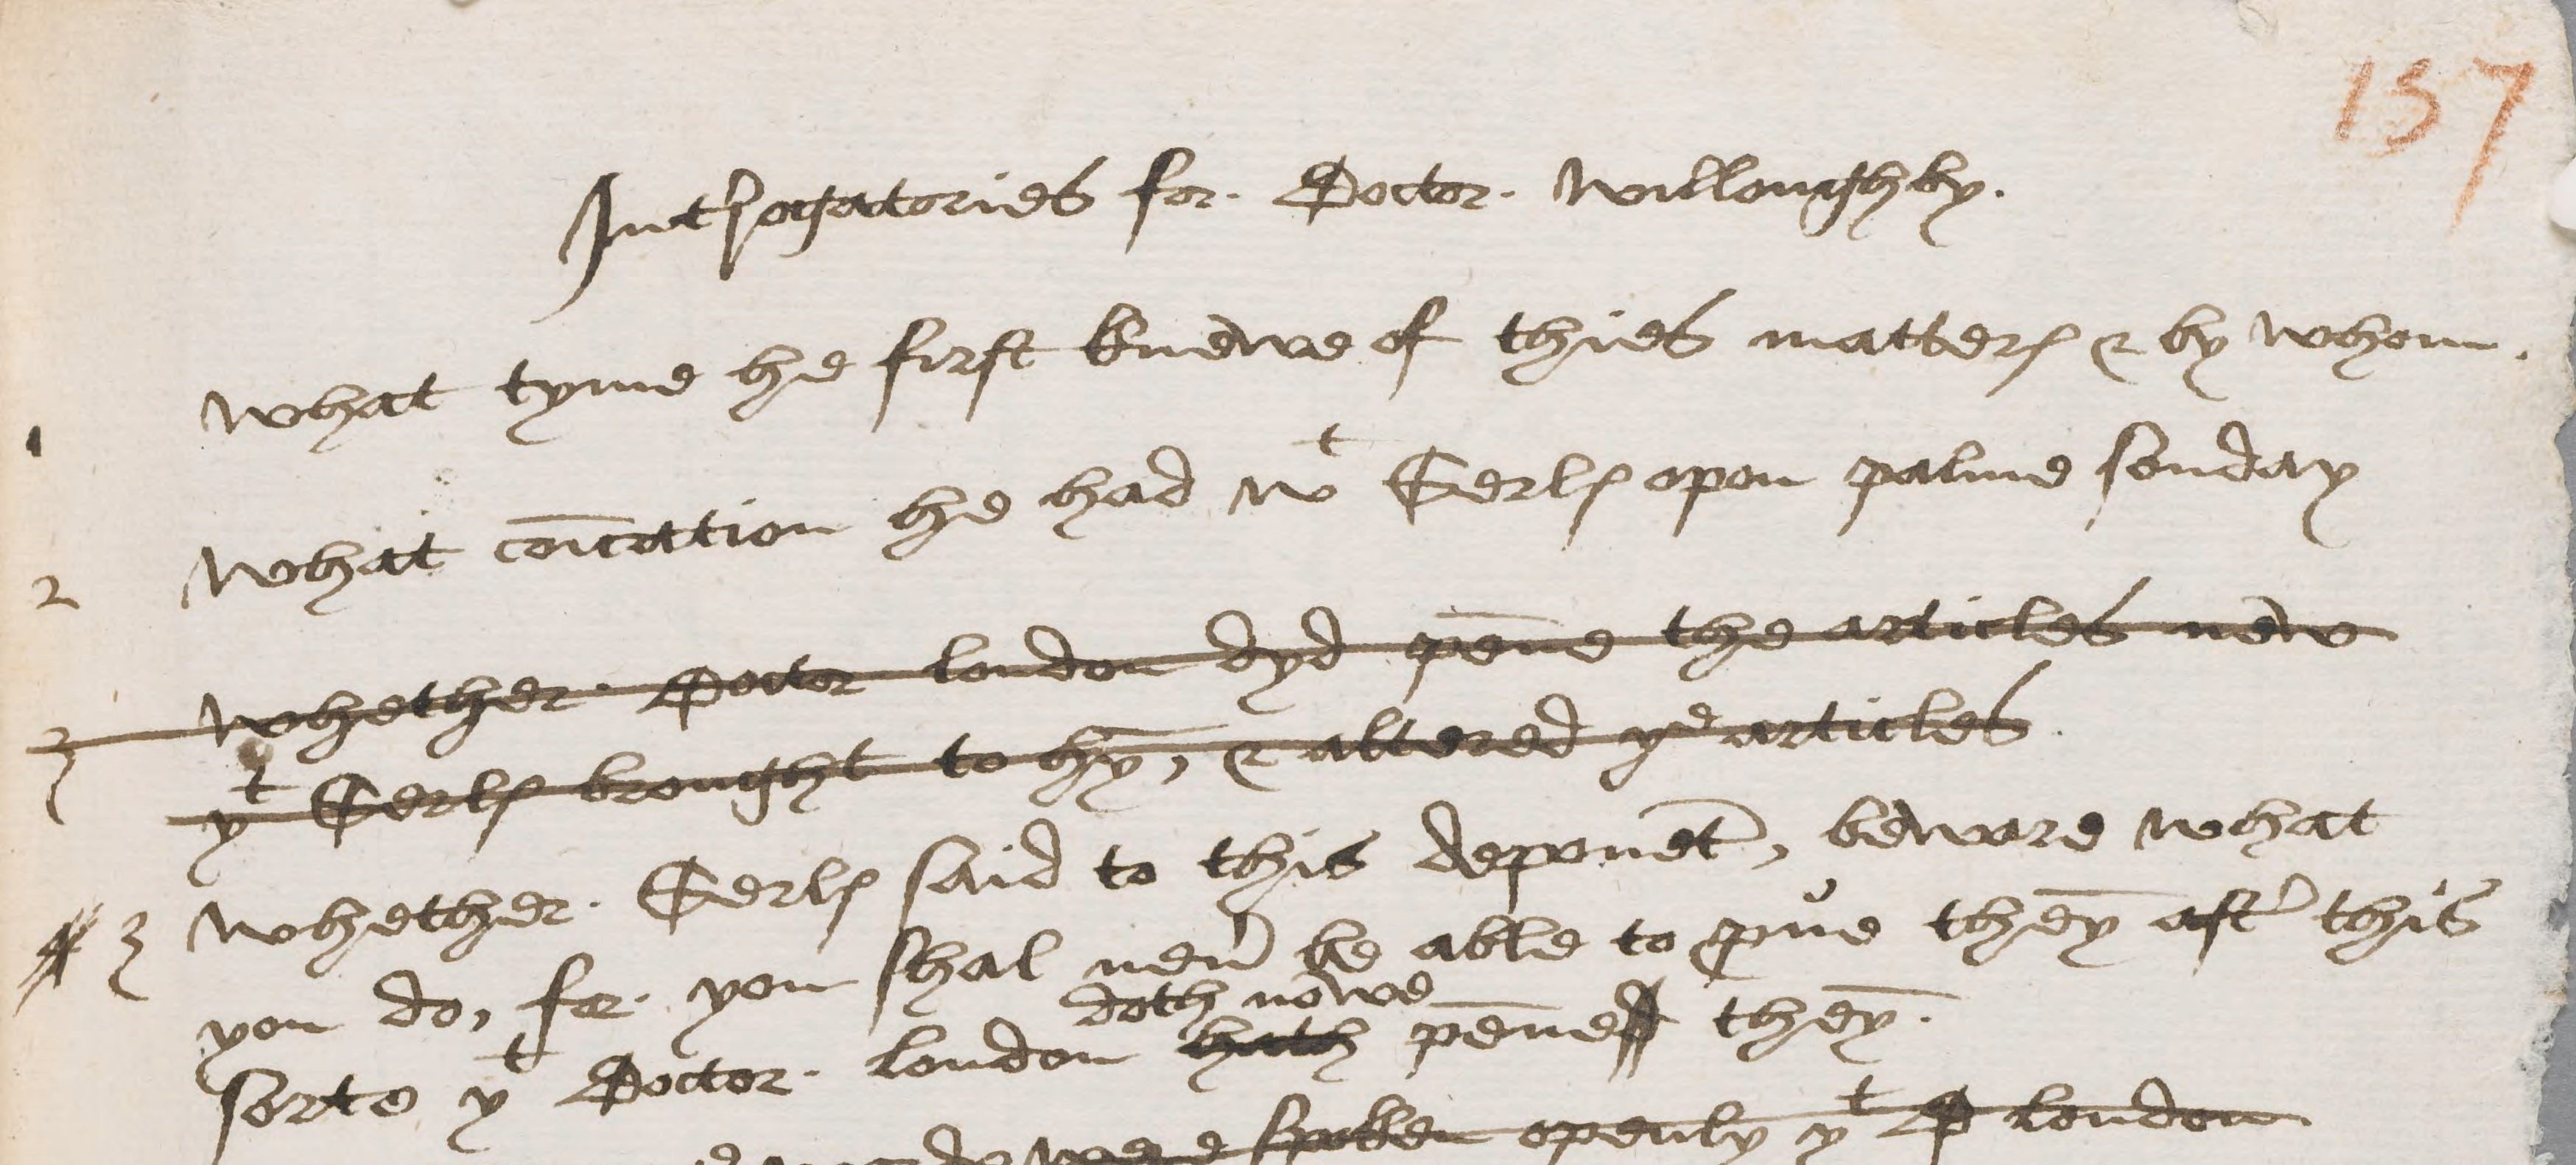 157
Int'rogatories for. Doctor. Willoughby.
1 What tyme he first knewe of thies matters & by whom.
2 What cōication he had wt Serls opon palme sonday
3 Whether. Doctor london dyd pēne the articles new
yt Serls brought to hȳ, & altered ye articles
4 3 Whether. Serls said to this deponēt, beware what
you do, for. you shal neu' be able to pue thēy aft' this
doth nowe
sorte yt Doctor. london hath pēned thēy.
spoken openly yt D london